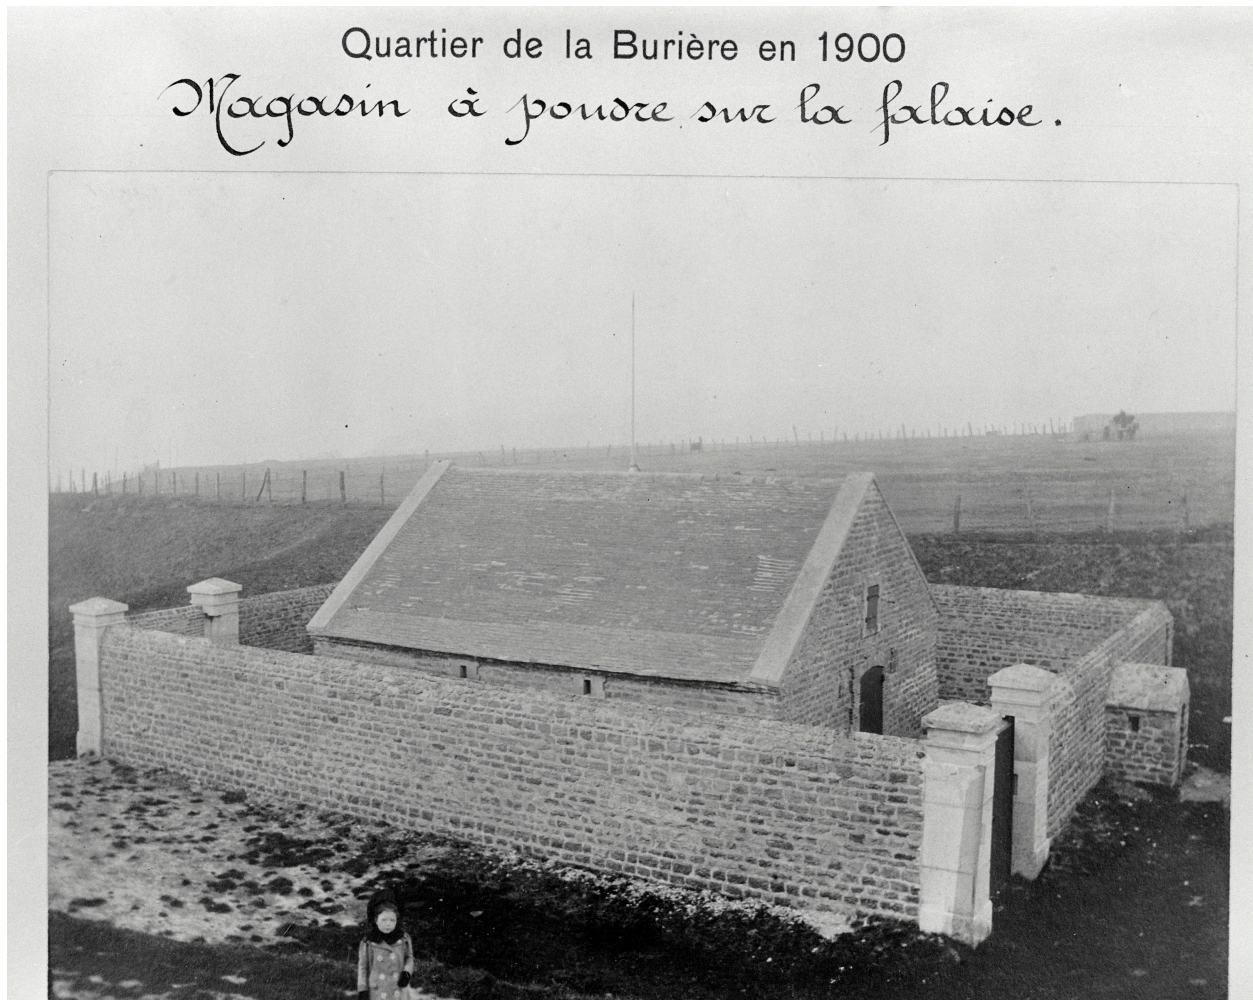 Quartier de la Burière en 1900
Magasin à poudre sur la falaise.